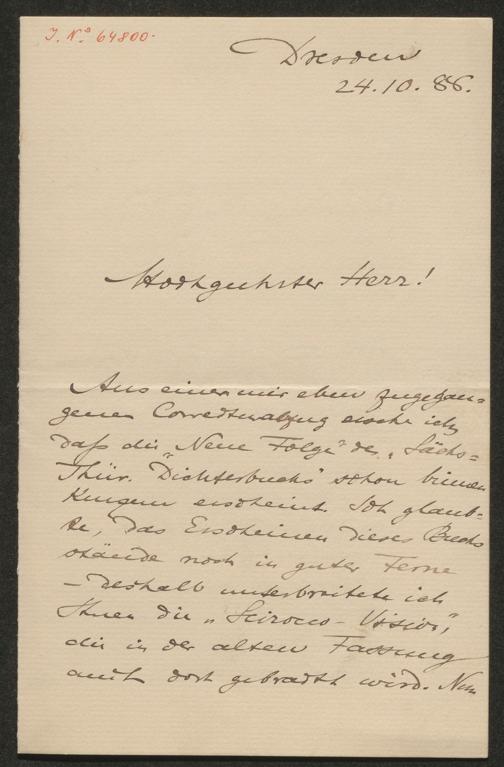 J. N.º 64800.
Dresden
24.10.86.
Hochgeehrter Herr!
Aus einem mir eben zugegan=
genen Correcturabzug ersehe ich,
daß die „Neue Folge“ des „Sächs=
Thür. Dichterbuchs“ schon binnen
Kurzem erscheint. Ich glaub-
te, das Erscheinen dieses Buchs
stände noch in guter Ferne
– deshalb unterbreitete ich
Ihnen die „Scirocco-Vision“,
die in der alten Fassung
auch dort gebracht wird. Nun